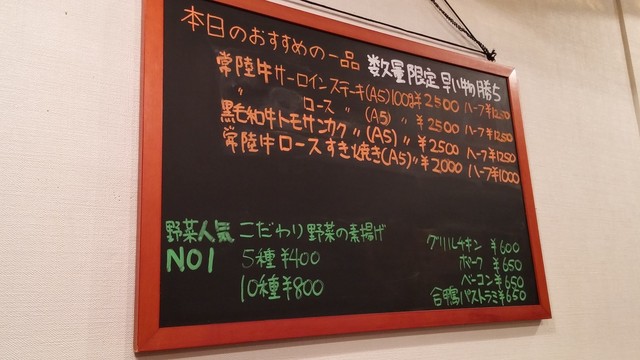 本日のおすすめの一品 数量限定 早い物勝ち
常陸牛サーロインステーキ(A5)100g¥2500 ハーフ¥1250
〃 ロース 〃 (A5) 〃 ¥2500 ハーフ¥1250
黒毛和牛トモサンカク〃(A5) 〃 ¥2500 ハーフ¥1250
常陸牛ロースすき焼き(A5)〃¥2000 ハーフ¥1000
野菜人気 こだわり野菜の素揚げ
NO1 5種¥400
10種¥800
グリルチキン ¥600
ポーク ¥650
ベーコン ¥650
合鴨パストラミ¥650